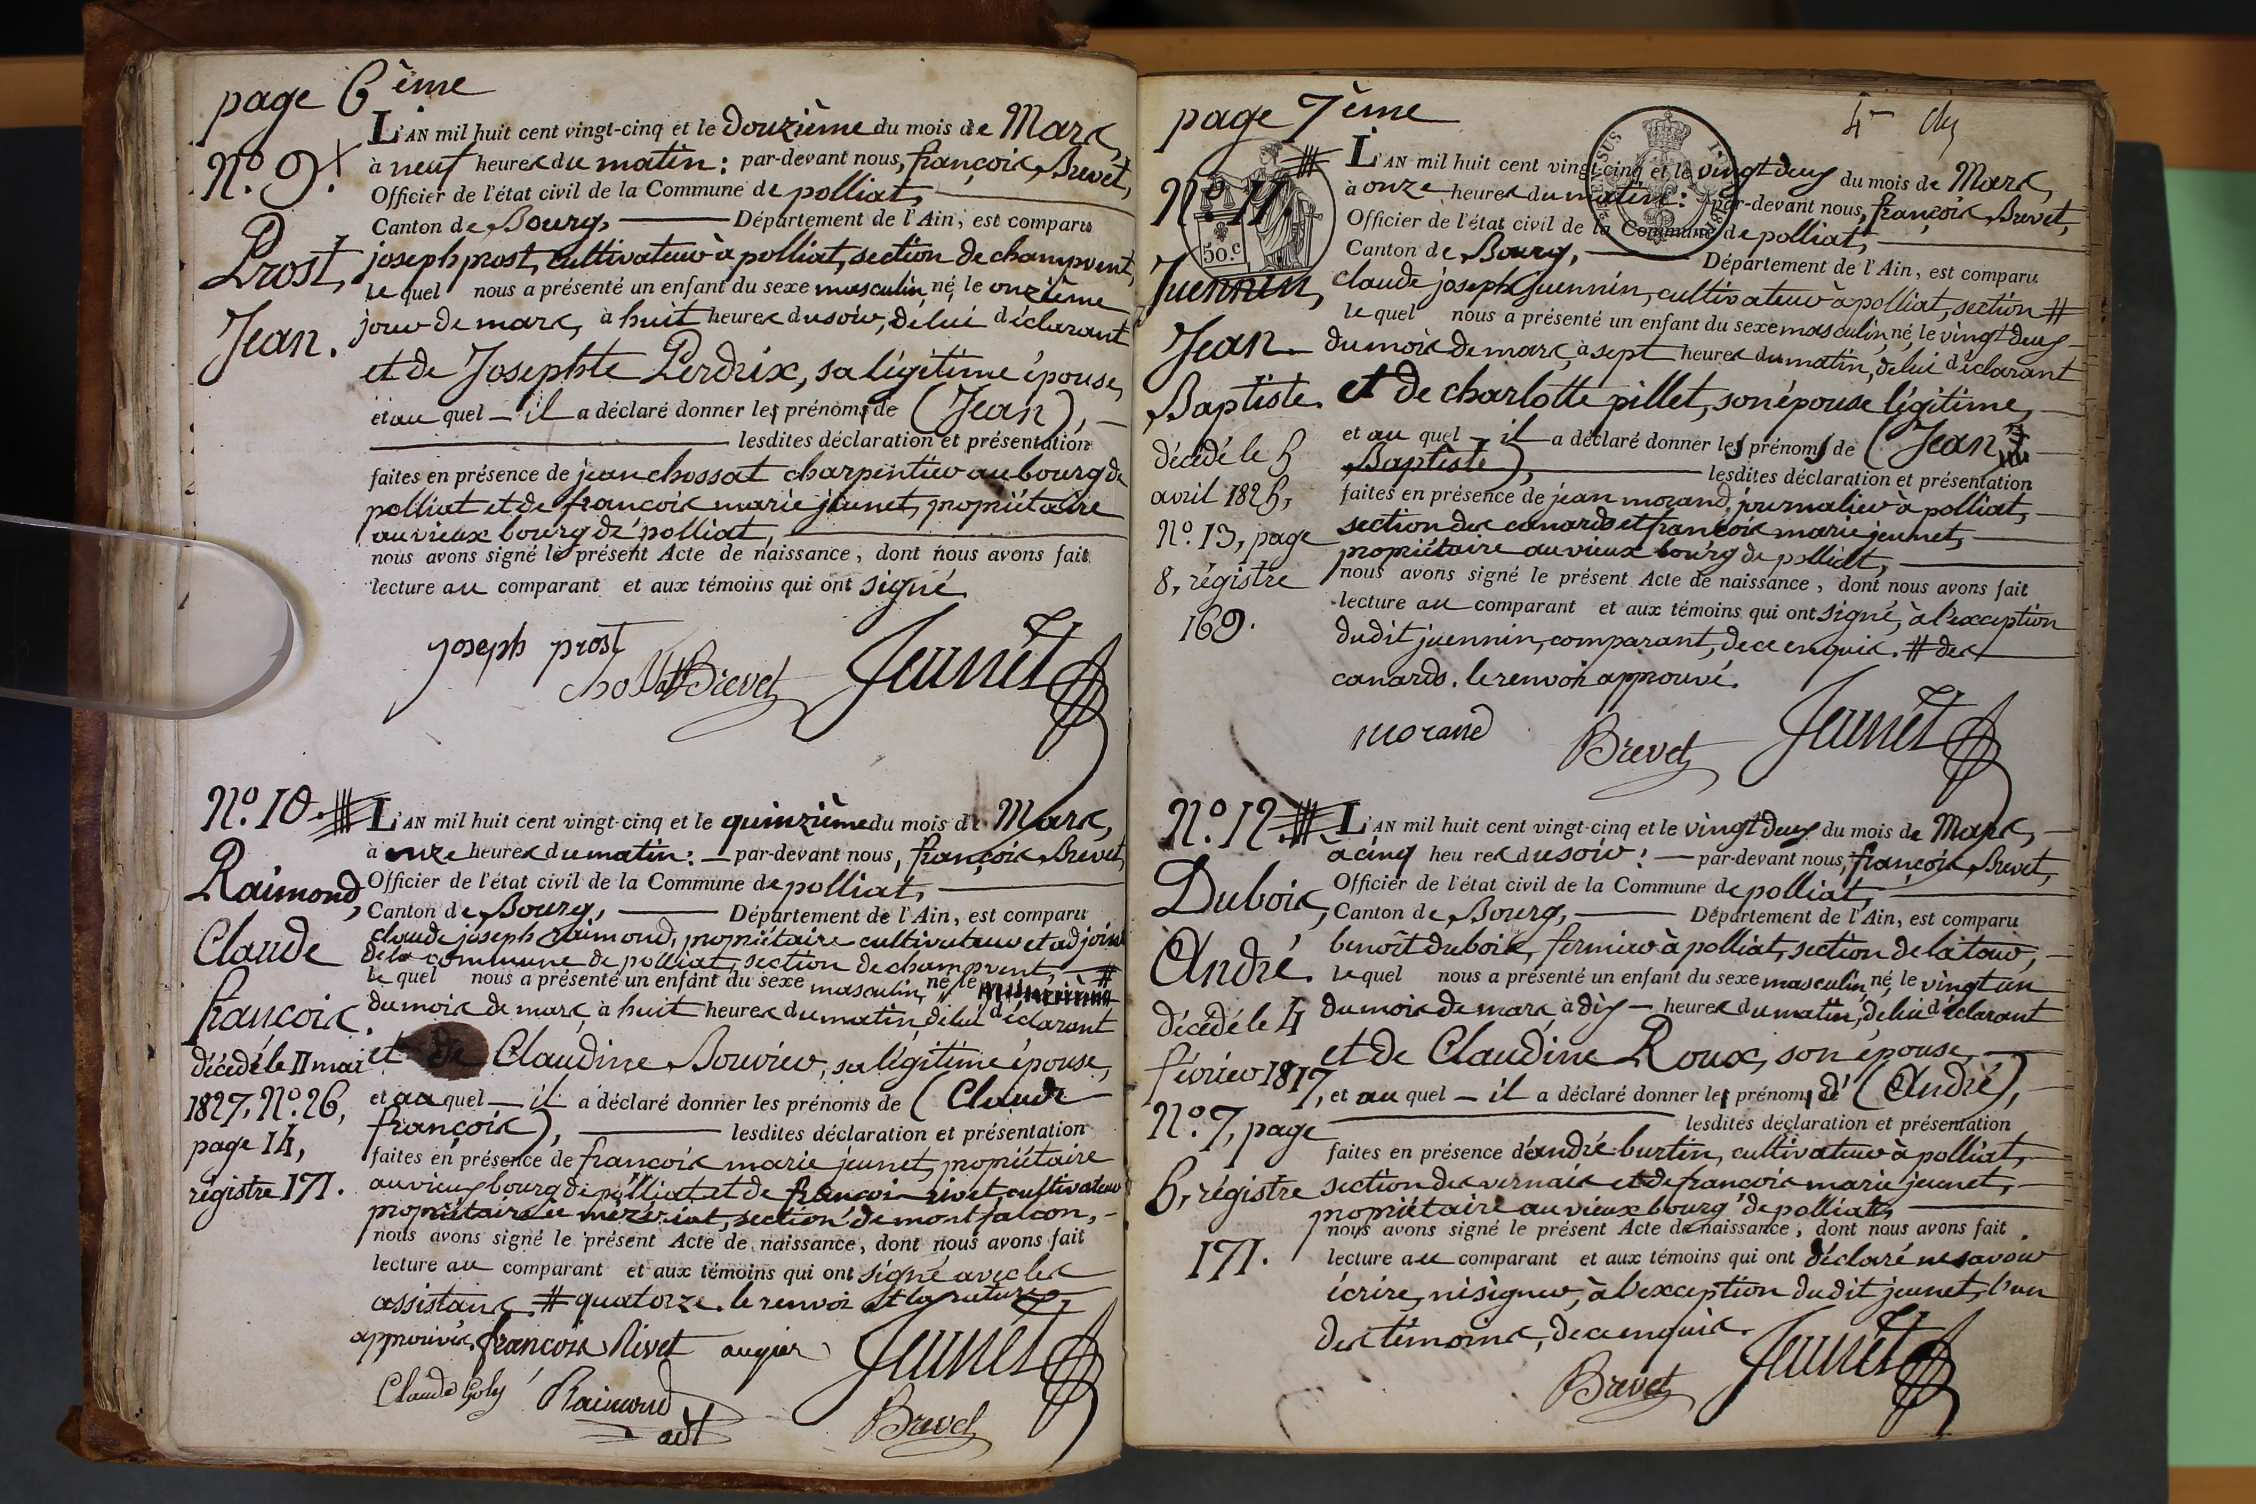 page 6ème
N.º 9.
Prost,
Jean.
L'AN mil huit cent vingt-cinq et le douzième du mois de Mars,
à neuf heures du matin : par-devant nous, françois Brevet,
Officier de l'état civil de la Commune de polliat,
Canton de Bourg, Département de l'Ain, est comparu
joseph prost, cultivateur à polliat, section de champvent,
le quel nous a présenté un enfant du sexe masculin, né, le onzième
jour de mars, à huit heures du soir, de lui déclarant
et de Josephte Perdrix, sa légitime épouse,
et au quel il a déclaré donner les prénoms de (Jean),
lesdites déclaration et présentation
faites en présence de jean chossat charpentier au bourg de
polliat et de françois marie jeunet, propriétaire
au vieux bourg de polliat,
nous avons signé le présent Acte de naissance, dont nous avons fait
lecture au comparant et aux témoins qui ont signé.
joseph prost
Brevet Jeunet
N.º 10.
Raimond,
Claude
françois.
décédé le 11 mai
1827, N.º 26,
page 14,
régistre 171.
L'AN mil huit cent vingt-cinq et le quinzième du mois de Mars,
à onze heures du matin : par-devant nous, françois Brevet,
Officier de l'état civil de la Commune de polliat,
Canton de Bourg, Département de l'Ain, est comparu
claude joseph raimond, propriétaire cultivateur et adjoint
de la commune de polliat, section de champvent,
le quel nous a présenté un enfant du sexe masculin, né le #
du mois de mars, à huit heures du matin, de lui déclarant
et de Claudine Bouvier, sa légitime épouse,
et au quel il a déclaré donner les prénoms de (Claude
françois), lesdites déclaration et présentation
faites en présence de françois marie jeunet, propriétaire
au vieux bourg de polliat et de françois rivet, cultivateur
propriétaire à mézériat, section de montfalcon,
nous avons signé le présent Acte de naissance, dont nous avons fait
lecture au comparant et aux témoins qui ont signé avec les
assistans. # quatorze. le renvoi et la rature
approuvés. françois Rivet augier Jeunet
Claude Goly Raimond adt Brevet
page 7ème
N.º 11.
50.c
Juennin,
Jean
Baptiste.
décédé le 5
avril 1825,
N.º 13, page
8, régistre
169.
L'AN mil huit cent vingt-cinq et le vingt deux du mois de Mars,
à onze heures du matin : par-devant nous, françois Brevet,
Officier de l'état civil de la Commune de polliat,
Canton de Bourg, Département de l'Ain, est comparu
claude joseph juennin, cultivateur à polliat, section #
le quel nous a présenté un enfant du sexe masculin, né, le vingt deux
du mois de mars, à sept heures du matin, de lui déclarant
et de charlotte pillet, son épouse légitime,
et au quel il a déclaré donner les prénoms de (Jean
Baptiste), lesdites déclaration et présentation
faites en présence de jean morand, journalier à polliat,
section des canards et françois marie jeunet,
propriétaire au vieux bourg de polliat,
nous avons signé le présent Acte de naissance, dont nous avons fait
lecture au comparant et aux témoins qui ont signé, à l'exception
dudit juennin, comparant, de ce enquis. # des
canards. le renvoi approuvé.
morand Brevet Jeunet
N.º 12.
Dubois,
André.
décédé le 4
février 1817,
N.º 7, page
6, régistre
171.
L'AN mil huit cent vingt-cinq et le vingt deux du mois de Mars,
à cinq heures du soir : par-devant nous, françois Brevet,
Officier de l'état civil de la Commune de polliat,
Canton de Bourg, Département de l'Ain, est comparu
benoît dubois, fermier à polliat, section de la tour,
le quel nous a présenté un enfant du sexe masculin, né, le vingt un
du mois de mars à dix heures du matin, de lui déclarant
et de Claudine Roux, son épouse
et au quel il a déclaré donner les prénoms de (André),
lesdites déclaration et présentation
faites en présence d'andré burtin, cultivateur à polliat,
section des vernais et de françois marie jeunet,
propriétaire au vieux bourg de polliat,
nous avons signé le présent Acte de naissance, dont nous avons fait
lecture au comparant et aux témoins qui ont déclaré ne savoir
écrire, ni signer, à l'exception dudit jeunet, l'un
des témoins, de ce enquis.
Brevet Jeunet